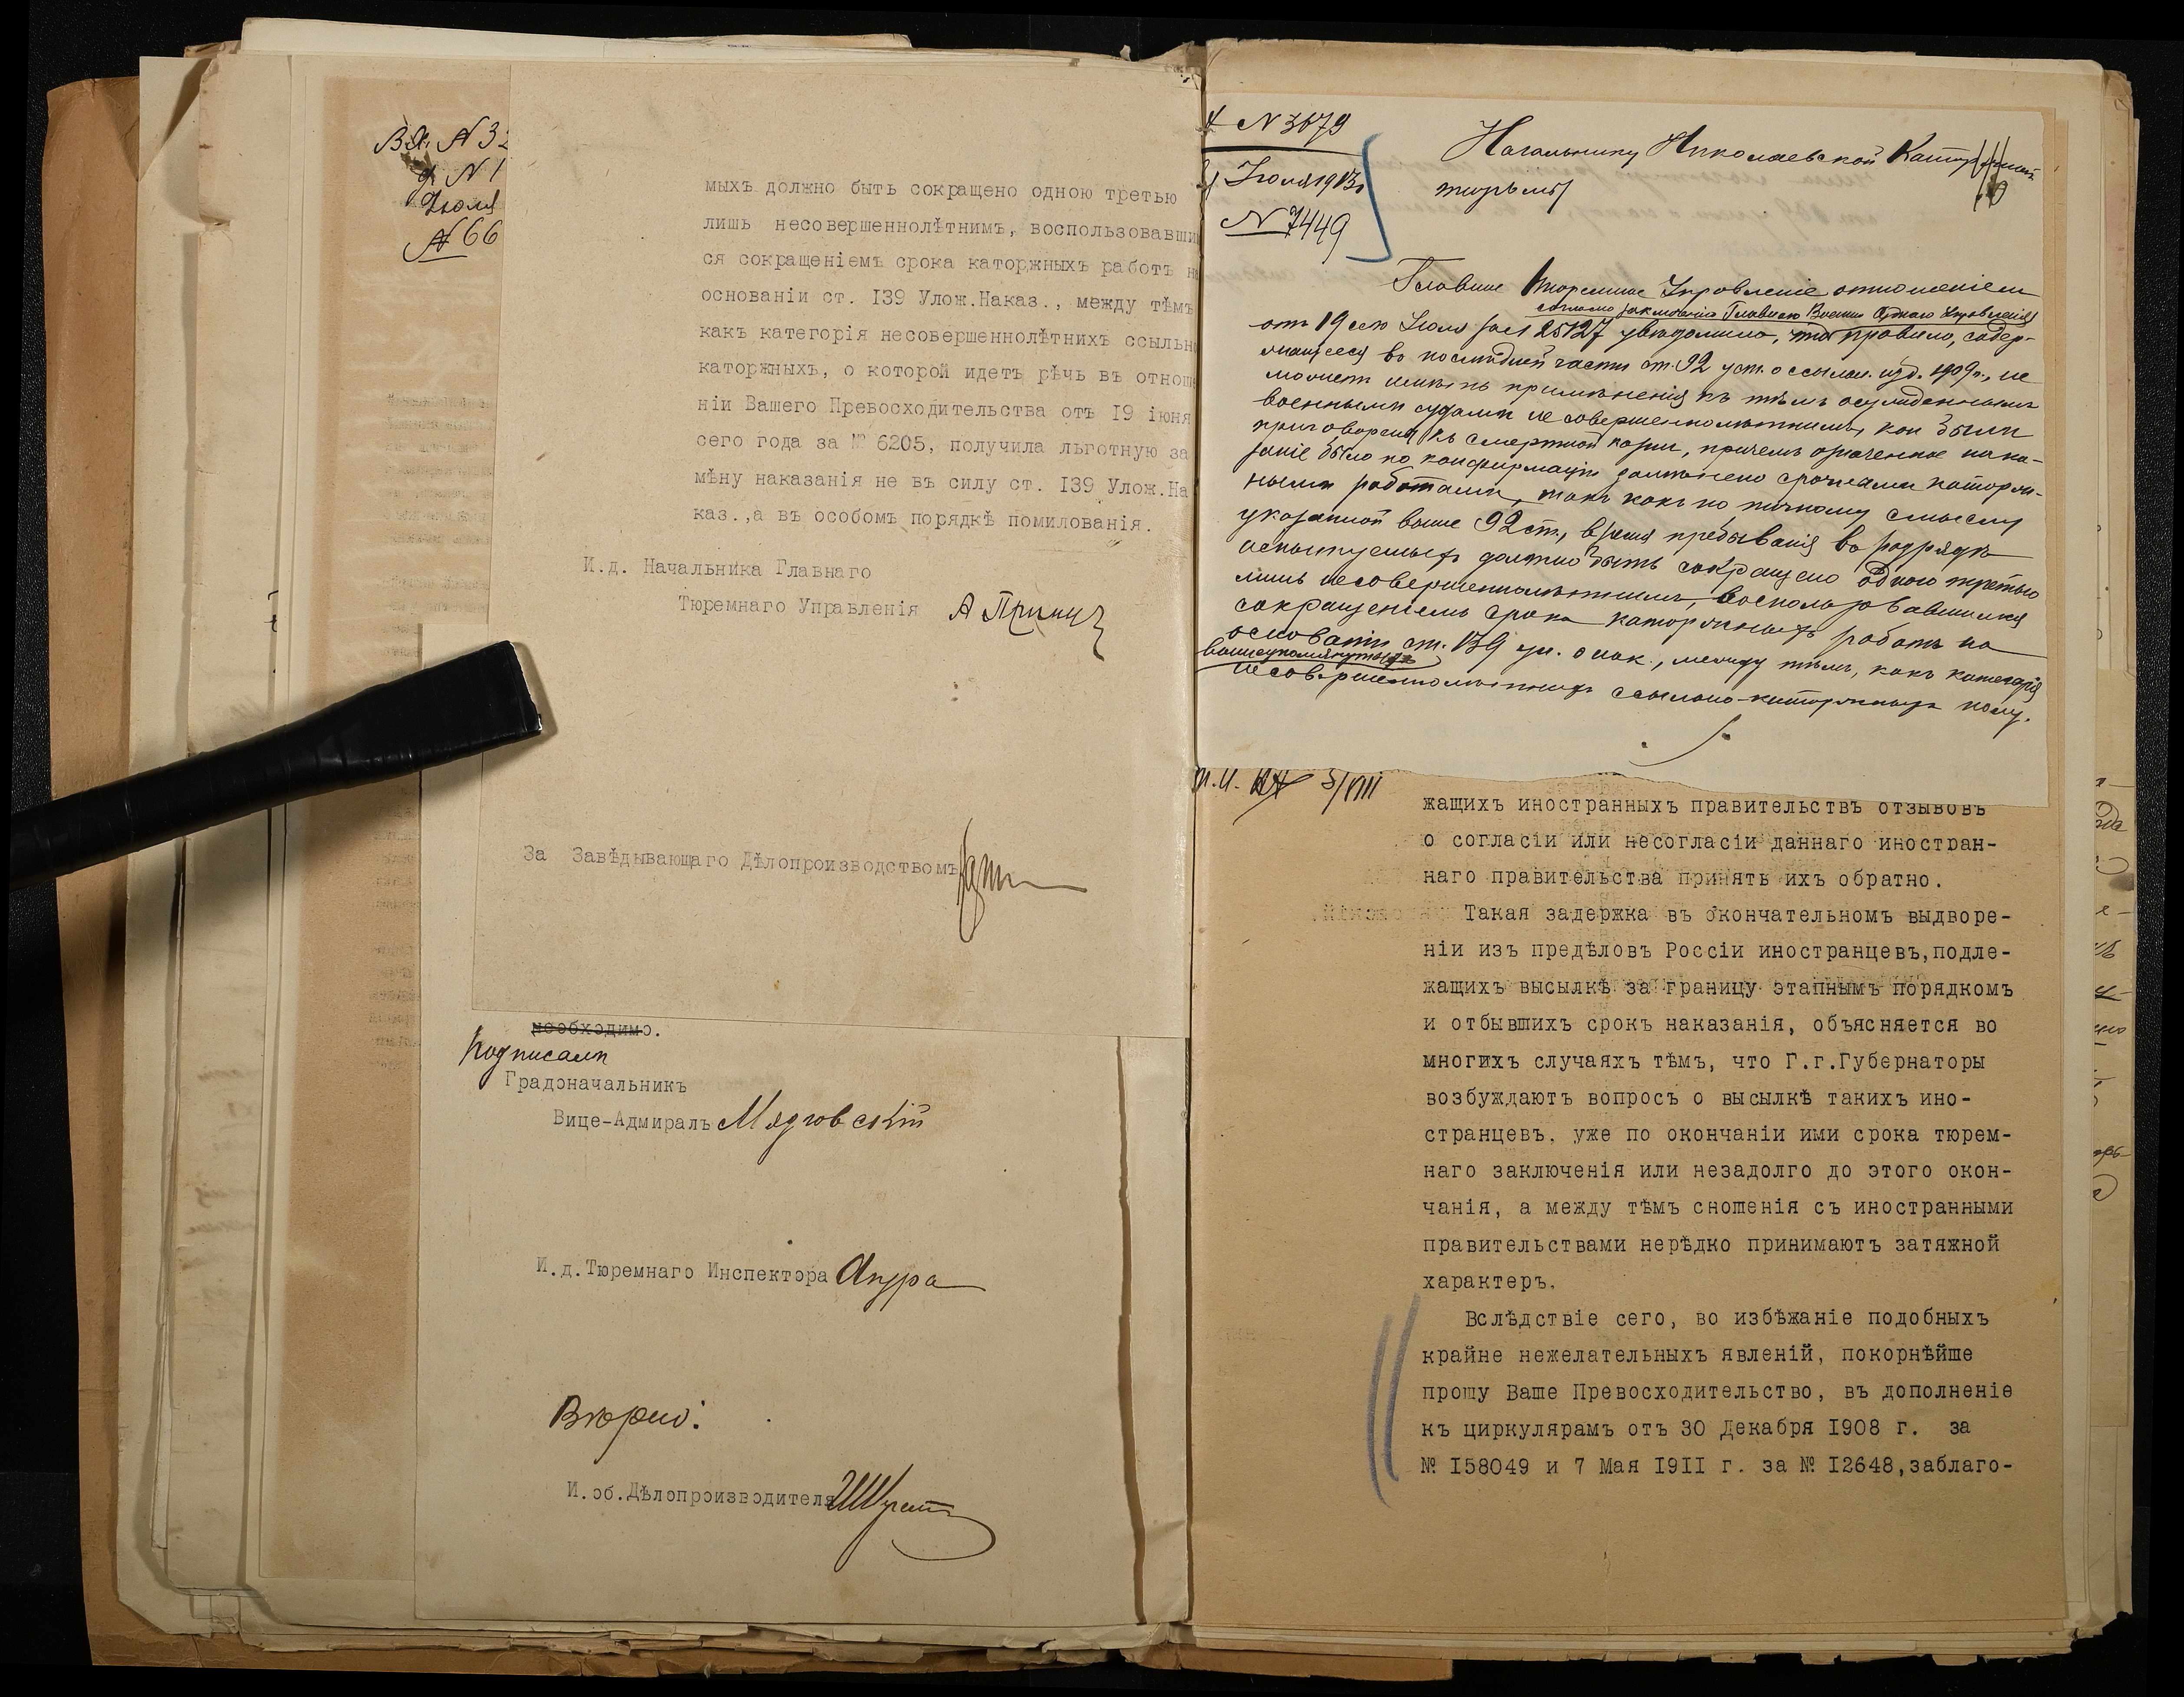 Вх. N 3
N 1
Июля
N 66
мыхъ должно быть сокращено одною третью
лишь несовершеннолѣтнимъ, воспользовавши
ся сокращеніемъ срока каторжныхъ работъ н
основаніи ст. 139 Улож.Наказ., между тѣмъ
какъ категорія несовершеннолѣтнихъ ссыльн
каторжныхъ, о которой идетъ рѣчь въ отноше
ніи Вашего Превосходительства отъ 19 іюня
сего года за № 6205, получила льготную за
мѣну наказанія не въ силу ст. 139 Улож.На
каз.,а въ особомъ порядкѣ помилованія.
И.д. Начальника Главнаго
Тюремнаго Управленія
За Завѣдывающаго Дѣлопроизводствомъ
необходимо.
подписали
Градоначальникъ
Вице-Адмиралъ Мязговскій
И.д.Тюремнаго Инспектора
Вѣрно:
И.об.Дѣлопроизводителя
N 3679
Июля 1913
N 7449
Начальнику Николаевской Каторжной
тюрьмы
Главное Тюремное Управленіе отношеніемъ
согласно заключенія Главнаго Военно Суднаго Управленія
отъ 19 сего Июля за N 25127 увѣдомило, что правило, содер-
жащееся въ послѣдней части ст. 92 уст. о ссыльн. изд. 1909 г., не
можетъ имѣть примѣненія къ тѣмъ осужденнымъ
военными судами несовершеннолѣтнимъ, кои были
приговорены къ смертной казни, причемъ означенное нака-
заніе было по конфирмаціи замѣнено срочными каторж-
ными работами, такъ какъ по точному смыслу
указанной выше 92 ст., время пребыванія въ разрядѣ
испытуемыхъ должно быть сокращено одною третью
лишь несовершеннолѣтнимъ, воспользовавшимся
сокращеніемъ срока каторжныхъ работъ на
основаніи ст. 139 ул. о нак., между тѣмъ, какъ категорія
вышеупомянутыхъ
несовершеннолѣтнихъ ссыльно-каторжныхъ полу.
жащихъ иностранныхъ правительствъ отзывовъ
о согласіи или несогласіи даннаго иностран-
наго правительства принять ихъ обратно.
Такая задержка въ окончательномъ выдворе-
ніи изъ предѣловъ Россіи иностранцевъ,подле-
жащихъ высылкѣ за границу этапнымъ порядкомъ
и отбывшихъ срокъ наказанія, объясняется во
многихъ случаяхъ тѣмъ, что Г.г.Губернаторы
возбуждаютъ вопросъ о высылкѣ такихъ ино-
странцевъ, уже по окончаніи ими срока тюрем-
наго заключенія или незадолго до этого окон-
чанія, а между тѣмъ сношенія съ иностранными
правительствами нерѣдко принимаютъ затяжной
характеръ.
Вслѣдствіе сего, во избѣжаніе подобныхъ
крайне нежелательныхъ явленій, покорнѣйше
прошу Ваше Превосходительство, въ дополненіе
къ циркулярамъ отъ 30 Декабря 1908 г. за
№ 158049 и 7 Мая 1911 г. за № 12648,заблаго-